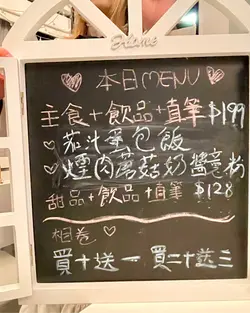 Home
本日MENU
主食+飲品+直筆 $199
茄汁蛋包飯
煙肉蘑菇奶醬意粉
甜品+飲品+直筆 $128
相卷
買十送一 買二十送三